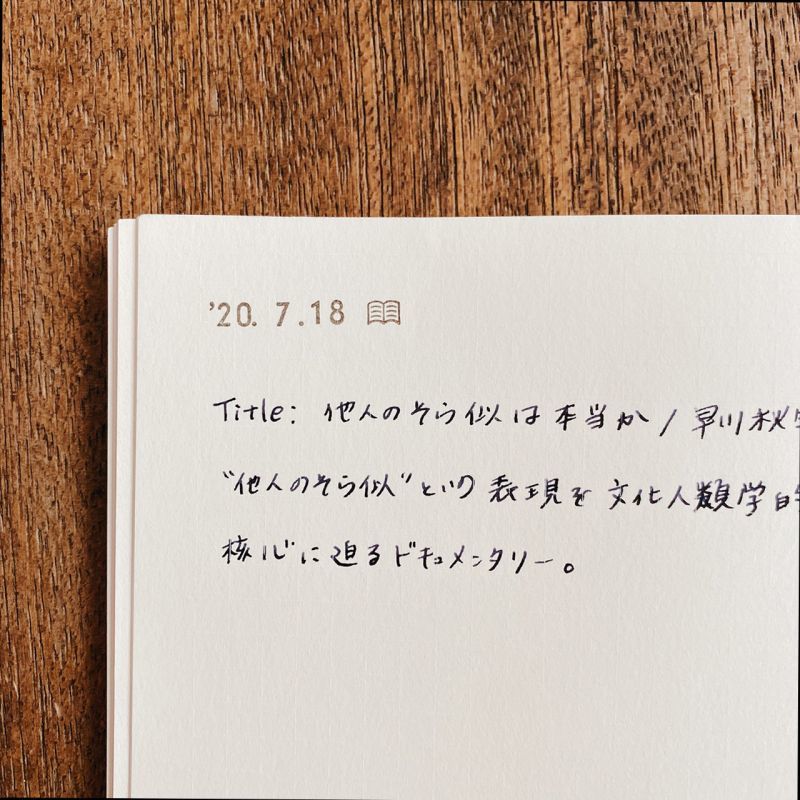 '20. 7.18
Title: 他人のそら似は本当か / 早川秋
"他人のそら似"という表現を文化人類学
核心に迫るドキュメンタリー。